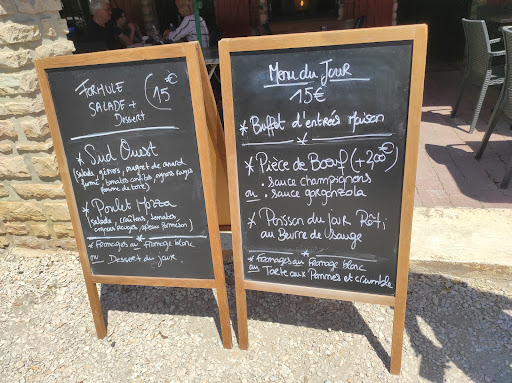 FORMULE
SALADE +
Dessert
15€
* Sud Ouest
(salade, gésiers, magret de canard
fumé, tomates confits, oignons rouges
pomme de terre)
* Poulet Mozza
(salade, croûtons, tomates,
oignons rouges, speus parmesan)
* Fromages ou Fromage blanc
ou Dessert du jour.
Menu du Jour
15€
* Buffet d'entrées maison
* Pièce de Bœuf (+2,00€)
. sauce champignons
ou . sauce gorgonzola
* Poisson du Jour Rôti
au Beurre de Vouvray
* Fromages ou fromage blanc
ou Tarte aux Pommes et crumble